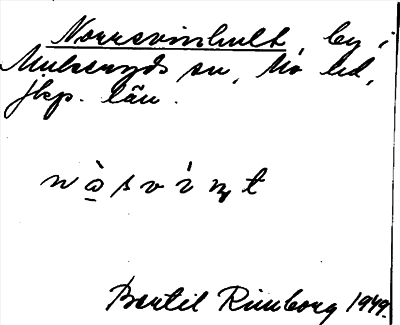 Norrsvinhult, by i
Mulseryds sn, Mo hd,
Jkp. län.
Bertil Rimborg 1949.